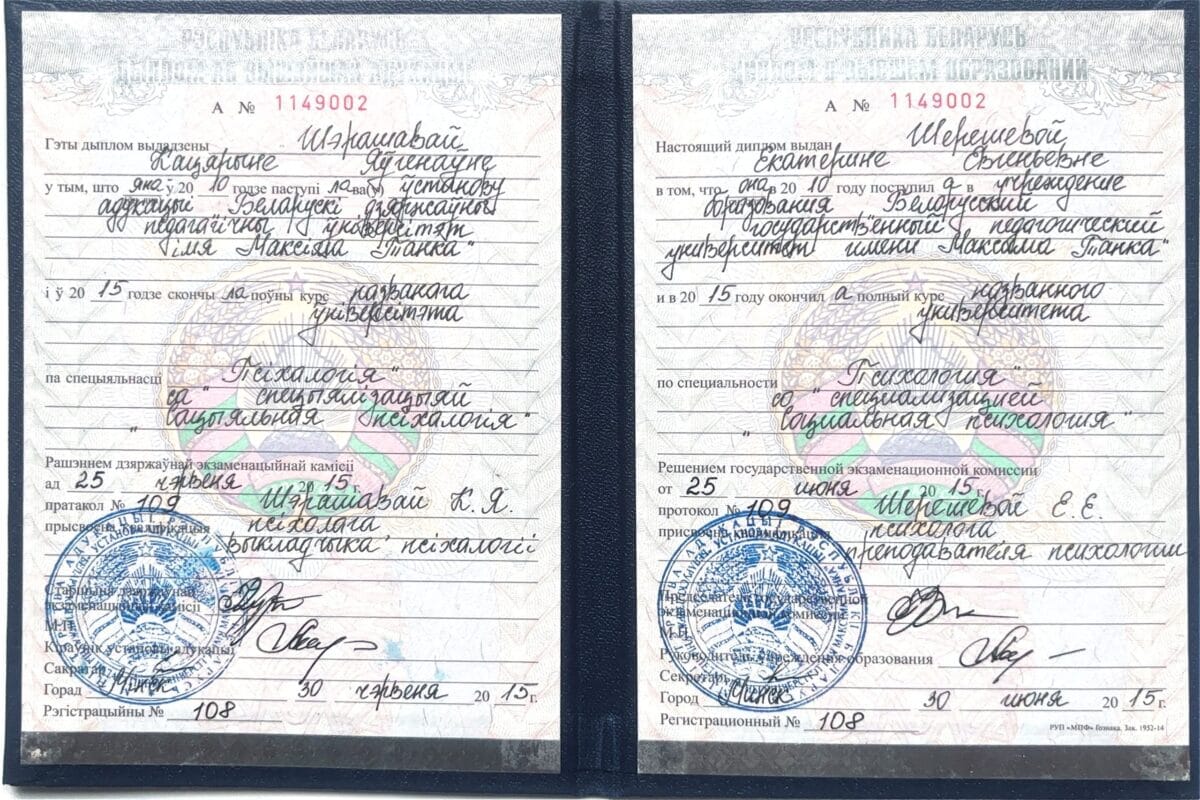 РЭСПУБЛІКА БЕЛАРУСЬ
ДЫПЛОМ АБ ВЫШЭЙШАЙ АДУКАЦЫІ
А № 1149002
Гэты дыплом выдадзены Шэрашавай
Кацярыне Яўгенаўне
у тым, што яна ў 20 10 годзе паступі ла ва(ў) ўстанову
адукацыі "Беларускі дзяржаўны
педагагічны ўніверсітэт
імя Максіма Танка"
і ў 20 15 годзе скончы ла поўны курс названага
ўніверсітэта
па спецыяльнасці "Псіхалогія"
са спецыялізацыяй
"Сацыяльная псіхалогія"
Рашэннем дзяржаўнай экзаменацыйнай камісіі
ад 25 чэрвеня 20 15 г.
пратакол № 109 Шэрашавай К. Я.
прысвоена кваліфікацыя псіхолага
выкладчыка псіхалогіі
Старшыня дзяржаўнай
экзаменацыйнай камісіі
М.П.
Кіраўнік установы адукацыі
Сакратар
Горад Мінск 30 чэрвеня 20 15 г.
Рэгістрацыйны № 108
РЕСПУБЛИКА БЕЛАРУСЬ
ДИПЛОМ О ВЫСШЕМ ОБРАЗОВАНИИ
А № 1149002
Настоящий диплом выдан Шерешевой
Екатерине Евгеньевне
в том, что она в 20 10 году поступил а в учреждение
образования "Белорусский
государственный педагогический
университет имени Максима Танка"
и в 20 15 году окончил а полный курс названного
университета
по специальности "Психология"
со специализацией
"Социальная психология"
Решением государственной экзаменационной комиссии
от 25 июня 20 15 г.
протокол № 109 Шерешевой Е. Е.
присвоена квалификация психолога
преподавателя психологии
Председатель государственной
экзаменационной комиссии
М.П.
Руководитель учреждения образования
Секретарь
Город Минск 30 июня 20 15 г.
Регистрационный № 108
РУП «МПФ» Гознака. Зак. 1952-14